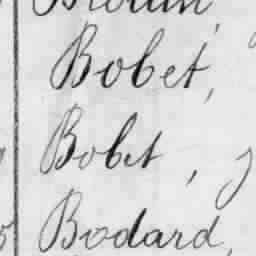 Bobet,
Bobet, J
Bodard,